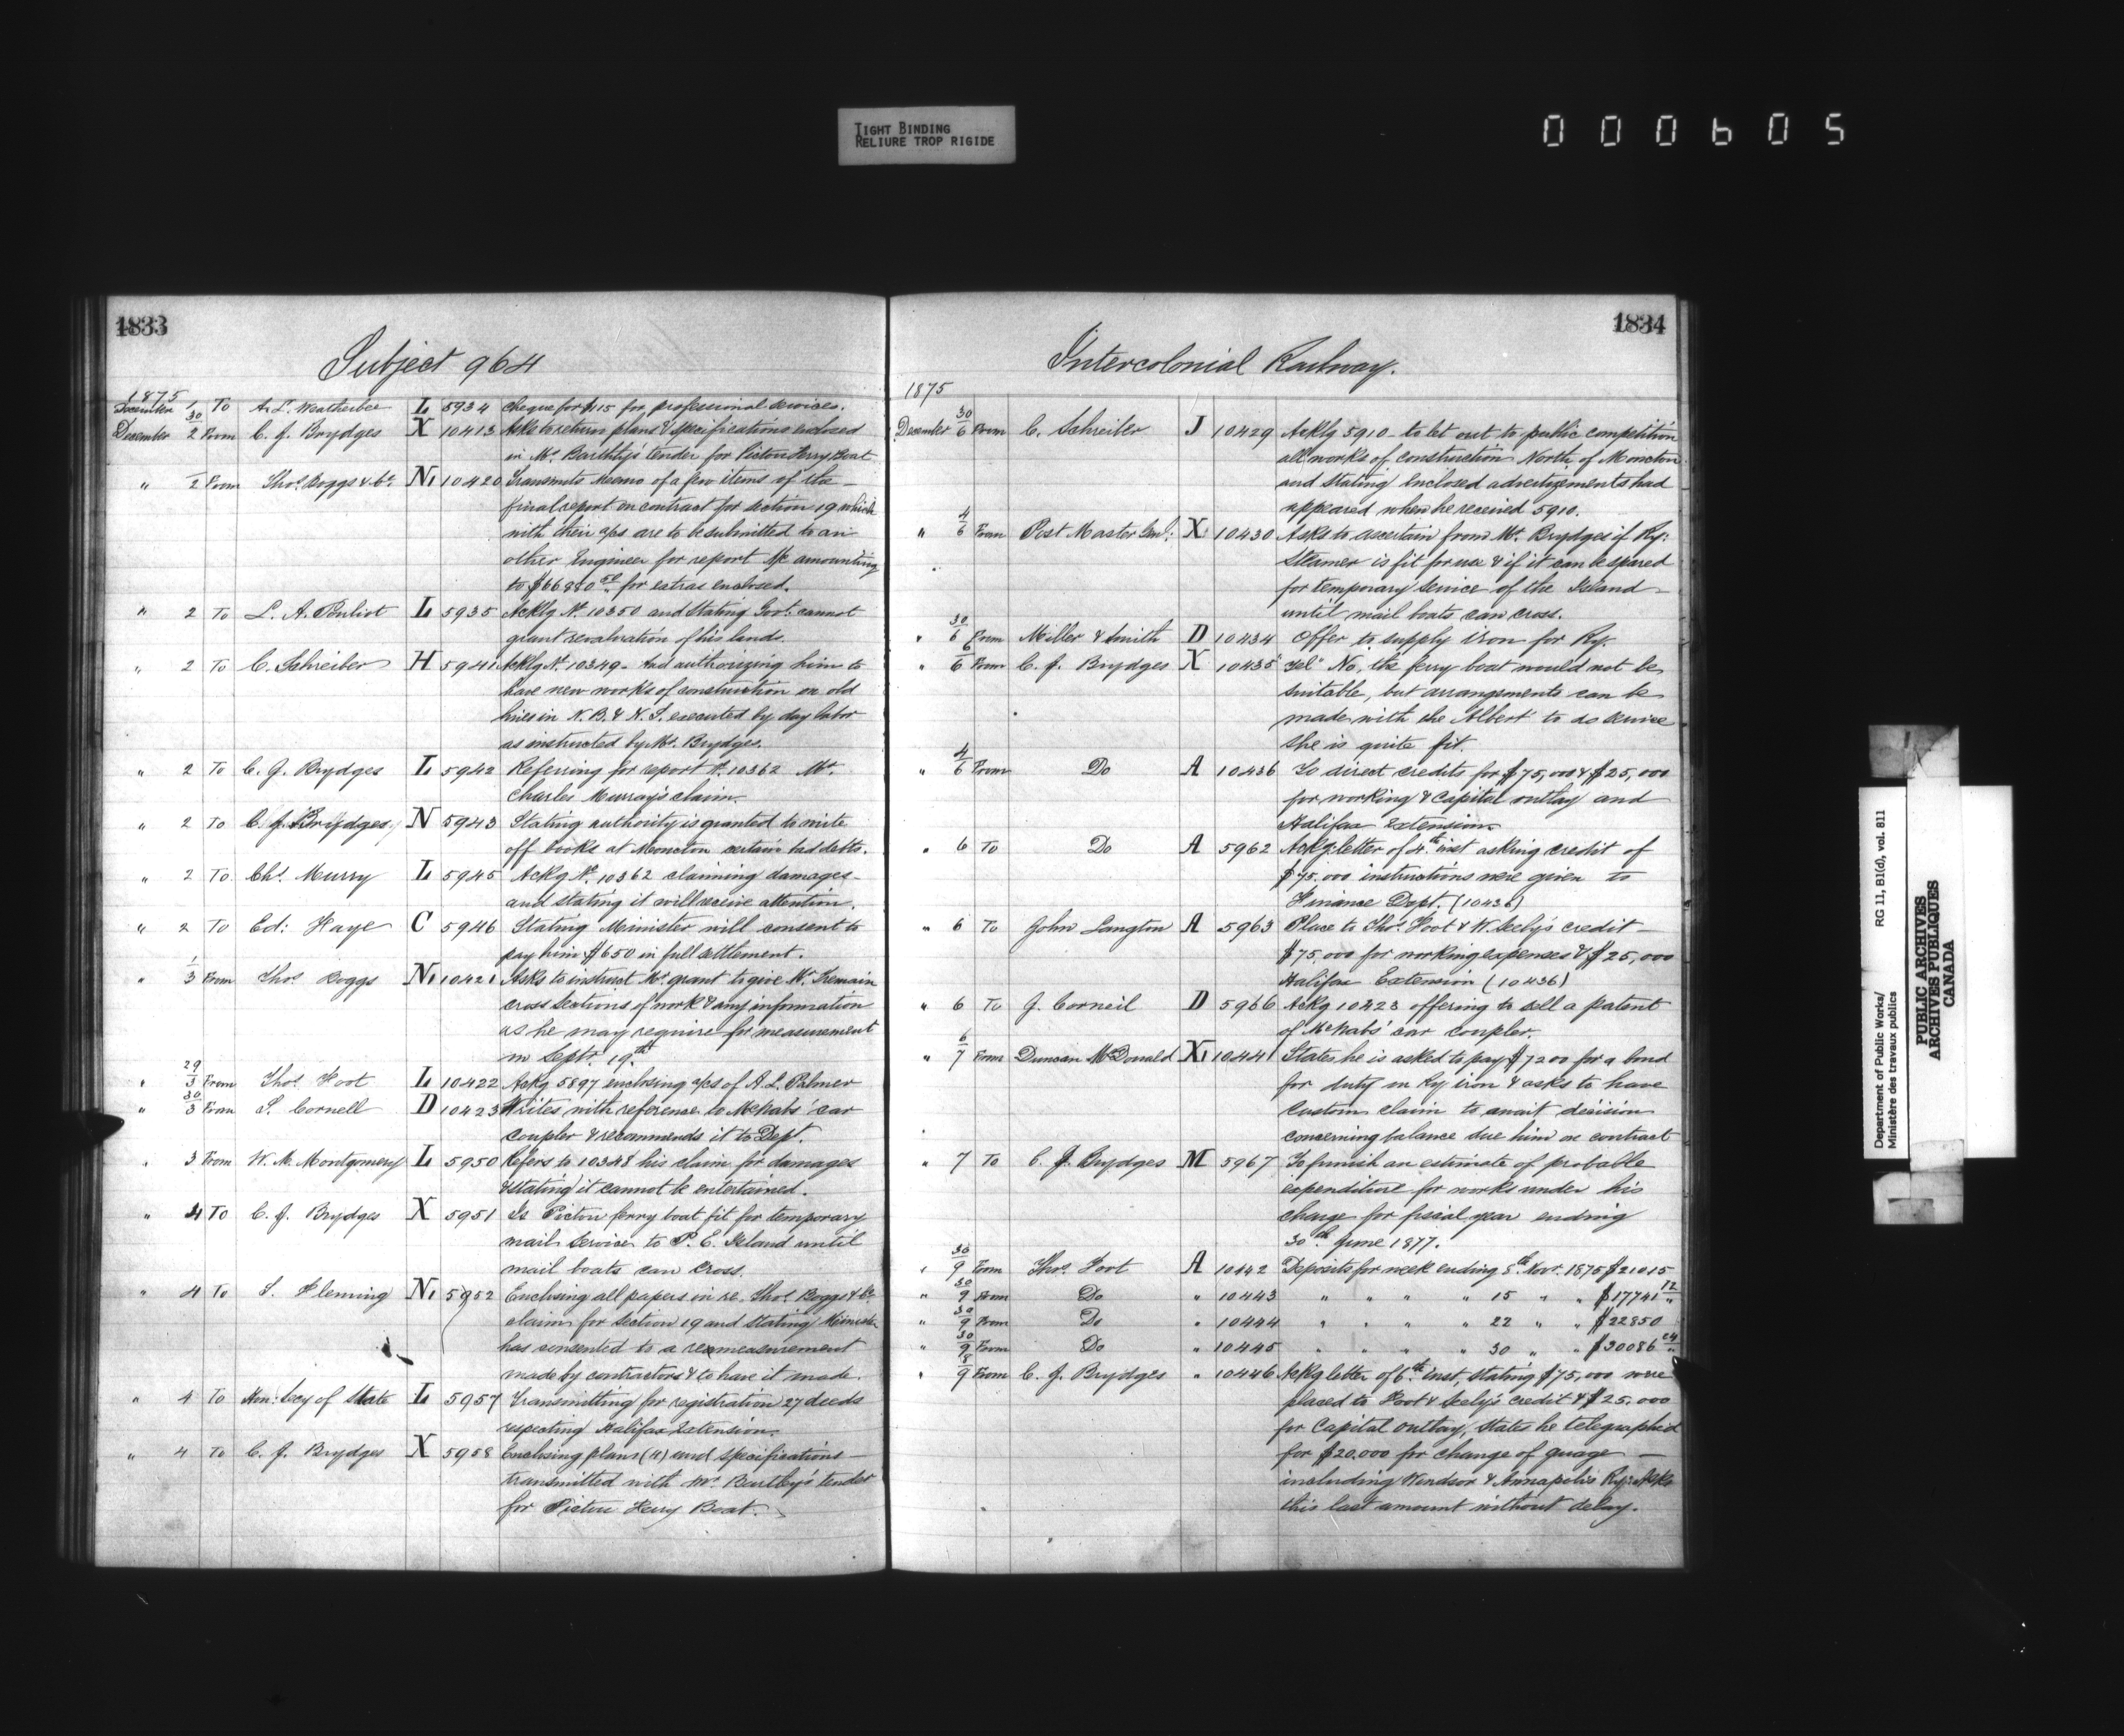 TIGHT BINDING
RELIURE TROP RIGIDE
000605
1833
Subject 964
1875
December 1 To A. L. Weatherbee L 5934 Cheque for $115 for professional services.
December 30/2 From C. J. Brydges X 10413 Asks to return plans & specifications enclosed
in Mr. Barthly's tender for Pictou Ferry Boat
" 1/2 From Thos. Boggs & Co. N1 10420 Transmits memo of a few items of the
final report on contract for section 19 which
with their a/cs are to be submitted to an
other Engineer for report &c amounting
to $66880 for extras enclosed.
" 2 To L. A. Pouliot L 5935 Ackg No. 10350 and stating Govt. cannot
grant revaluation of his lands.
" 2 To C. Schreiber H 5941 Ackg No. 10349 authorizing him to
have new works of construction on old
lines in N.B. & N.S. executed by day labor
as instructed by Mr. Brydges.
" 2 To C. J. Brydges L 5942 Referring for report No. 10362 Mr.
Charles Murray's claim.
" 2 To C. J. Brydges N 5943 Stating authority is granted to write
off books at Moncton certain bad debts.
" 2 To Chs. Murry L 5945 Ackg No. 10362 claiming damages
and stating it will receive attention.
" 2 To Ed: Haye C 5946 Stating Minister will consent to
pay him $650 in full settlement.
" 1/3 From Thos Boggs N1 10421 Asks to instruct Mr. grant to give Mr. Tremain
cross sections of work & any information
as he may require for measurement
in Septr. 19th
" 29/3 From Thos. Foot L 10422 Ackg 5897 enclosing a/cs of A. L. Palmer
" 30/3 From S. Cornell D 10423 Writes with reference to McNabs' car
coupler & recommends it to Dept.
" 3 From W. M. Montgomery L 5950 Refers to 10348 his claim for damages
& stating it cannot be entertained.
" 4 To C. J. Brydges X 5951 Is Pictou ferry boat fit for temporary
mail service to P. E. Island until
mail boats can cross.
" 4 To S. Fleming N1 5952 Enclosing all papers in re. Thos. Boggs & Co.
claim for section 19 and stating Minister
has consented to a remeasurement
made by contractors & to have it made.
" 4 To Hon: Secy of State L 5957 Transmitting for registration 27 deeds
respecting Halifax Extension.
" 4 To C. J. Brydges X 5958 Enclosing plans (4) and specifications
transmitted with Mr. Bartley's tender
for Pictou Ferry Boat.
1834
Intercolonial Railway.
1875
December 30/6 From C. Schreiber J 10429 Ackg 5910 to let out to public competition
all works of construction North of Moncton
and stating enclosed advertizements had
appeared when he received 5910.
" 4/6 From Post Master Genl: X 10430 Asks to ascertain from Mr. Brydges if Ry:
Steamer is fit for use & if it can be spared
for temporary service of the Island
until mail boats can cross.
" 30/6 From Miller & Smith D 10434 Offer to supply iron for Ry.
" 6/6 From C. J. Brydges X 10435 Tel" No, the ferry boat would not be
suitable, but arrangements can be
made with the Albert to do service
she is quite fit.
" 4/6 From Do A 10436 To direct credits for $75,000 & $25,000
for working & Capital outlay and
Halifax Extension
" 6 To Do A 5962 Ackg letter of 4th inst asking credit of
$75.000 instructions were given to
Finance Dept. (10436)
" 6 To John Langton A 5963 Place to Thos. Foot & W. Seely's credit
$75.000 for working expenses & $25,000
Halifax Extension (10436)
" 6 To J. Corneil D 5966 Ackg 10423 offering to sell a patent
of McNabs' car coupler.
" 6/7 From Duncan McDonald X1 10441 States he is asked to pay $7200 for a bond
for duty on Ry iron & asks to have
custom claim to await decision
concerning balance due him on contract
" 7 To C. J. Brydges M 5967 To furnish an estimate of probable
expenditure for works under his
charge for fiscal year ending
30th June 1877.
" 30/9 From Thos. Foot A 10442 Deposits for week ending 8th Novr. 1875 $21015
" 30/9 From Do " 10443 " " " " 15 " " $17741 12
" 30/9 From Do " 10444 " " " " 22 " " $22850
" 30/9 From Do " 10445 " " " " 30 " " $30086 24
" 8/9 From C. J. Brydges " 10446 Ackg letter of 6th inst, stating $75,000 were
placed to Foot & Seely's credit & $25.000
for Capital outlay, states he telegraphed
for $20.000 for change of guage
including Windsor & Annapolis Ry: Asks
this last amount without delay.
Department of Public Works/
Ministère des travaux publics
RG 11, B1(d), vol. 811
PUBLIC ARCHIVES
ARCHIVES PUBLIQUES
CANADA